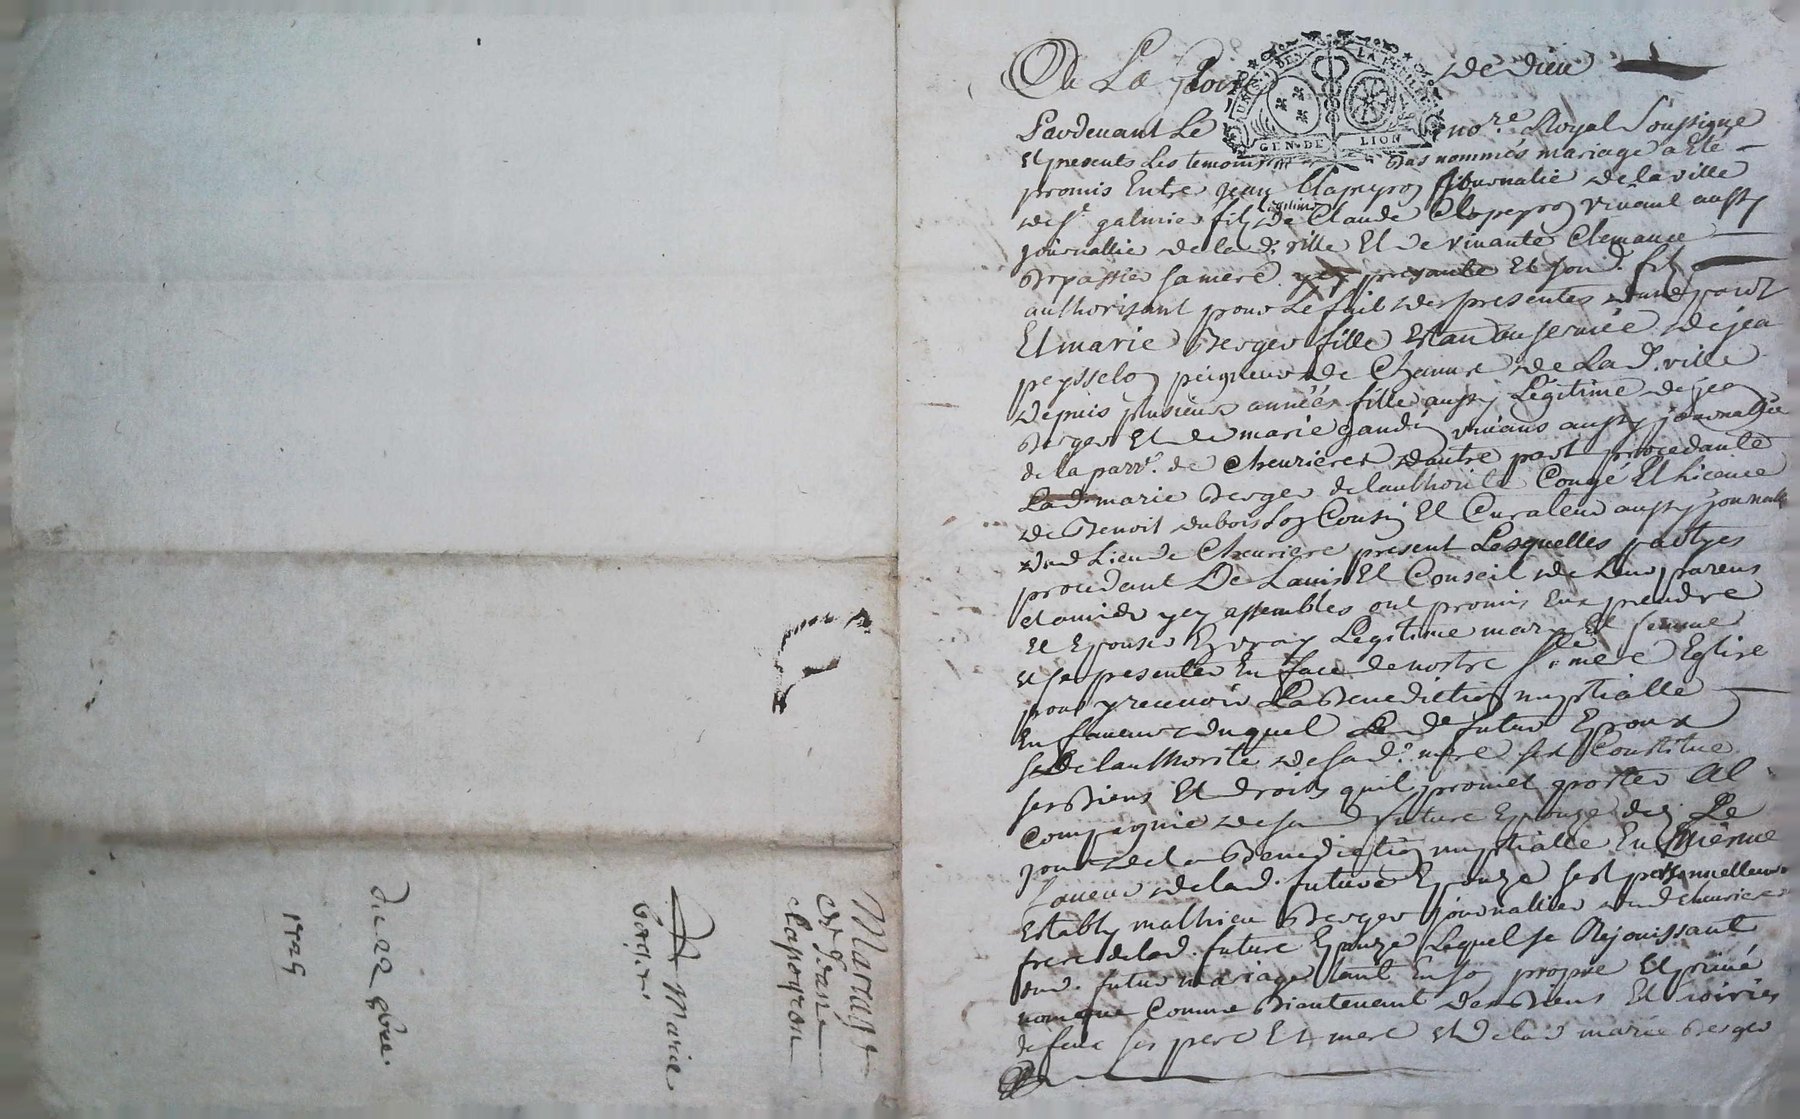 A La gloire de dieu
Pardevant Le no.re Royal Soussigne
Et presents Les temoins bas nommés mariage a Eté
promis Entre jean Clapeyron journalié de la ville
de st galmier fils legitime de Claude Clapeyron vivant aussy
journallié de la d. ville Et de vivante Clemance
sa mere presante Et son d. fils
authorisant pour Le fait des presentes d'une part
Et marie Berger fille Estan au servicé de jea
peysselon peigneur de Chanvre de La d. ville
depuis plusieur années fille aussy Légitime de jea
Berger Et de marie gaudin vivans aussy journallié
de la parr.e de Cheurieres d'autre part procedante
La d. marie Berger de lauthorite Congé Et Licence
de Benoit dubois son Cousin Et Curateur aussy journallié
dud Lieu de Cheuriere present Lesquelles partyes
procedant De Lauis Et Conseil de Leur parens
et amis yey assemblés ont promis prendre
Et Epouser En vray Legitime mary Et femme
et se presenter En face de nostre s.te mere Eglise
pour y recevoir La Benediction nuptialle
En faveur duquel Le d futur Epoux
de lauthorité de sa d. mere sest Constitue
ses Biens Et droits quil promet porter Al
Compagnie de sa d future Epouze des Le
jour de la Benediction nuptialle En Mesme
faveur de lad. future Epouze sest personnellement
Estably mathieu Berger journallier dud cheuriere
frere de lad. future Epouze Lequel se Rejouissant
dud. futur mariage tant En son propre Et privé
nom que Comme Biantenant des Biens Et hoiries
de feus ses pere Et mere et de lad marie Berger
GEN. DE LION
Mariage
de Jean
Clapeyron
Marie
Berger
du 22
1729